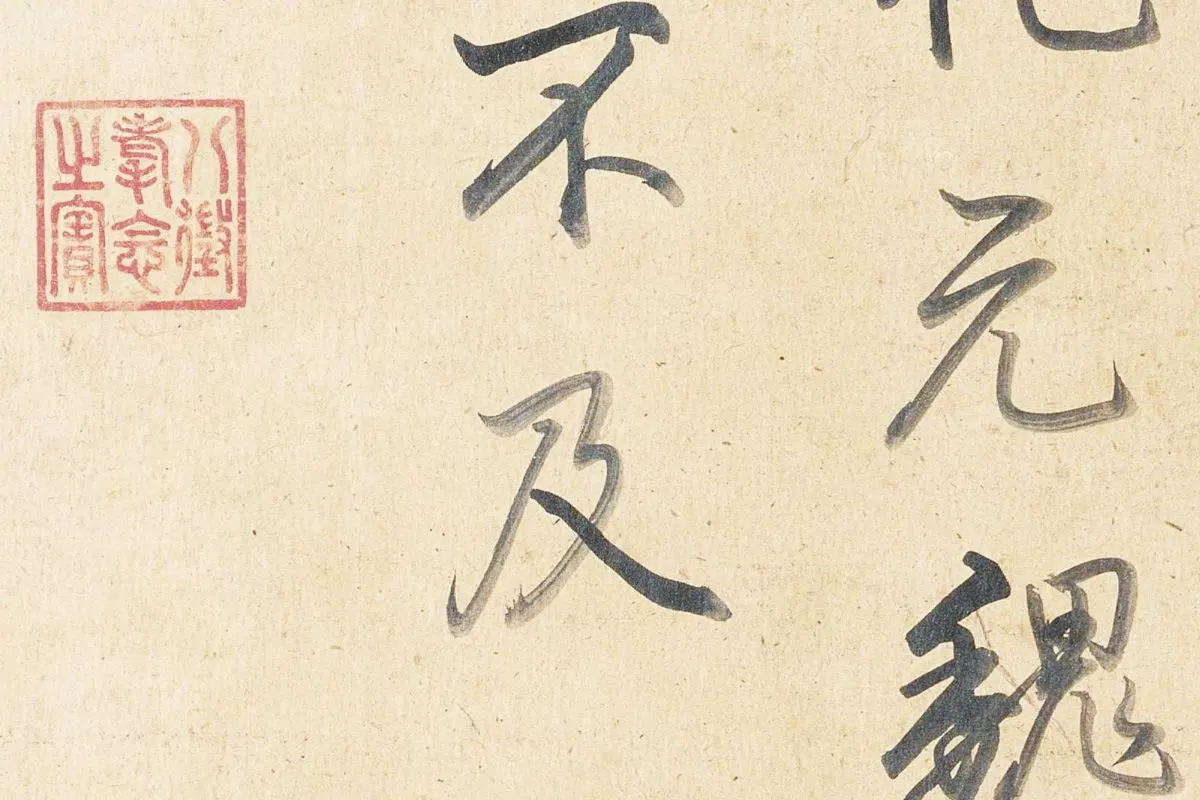 元魏
不及
八徵
耄念
之寶